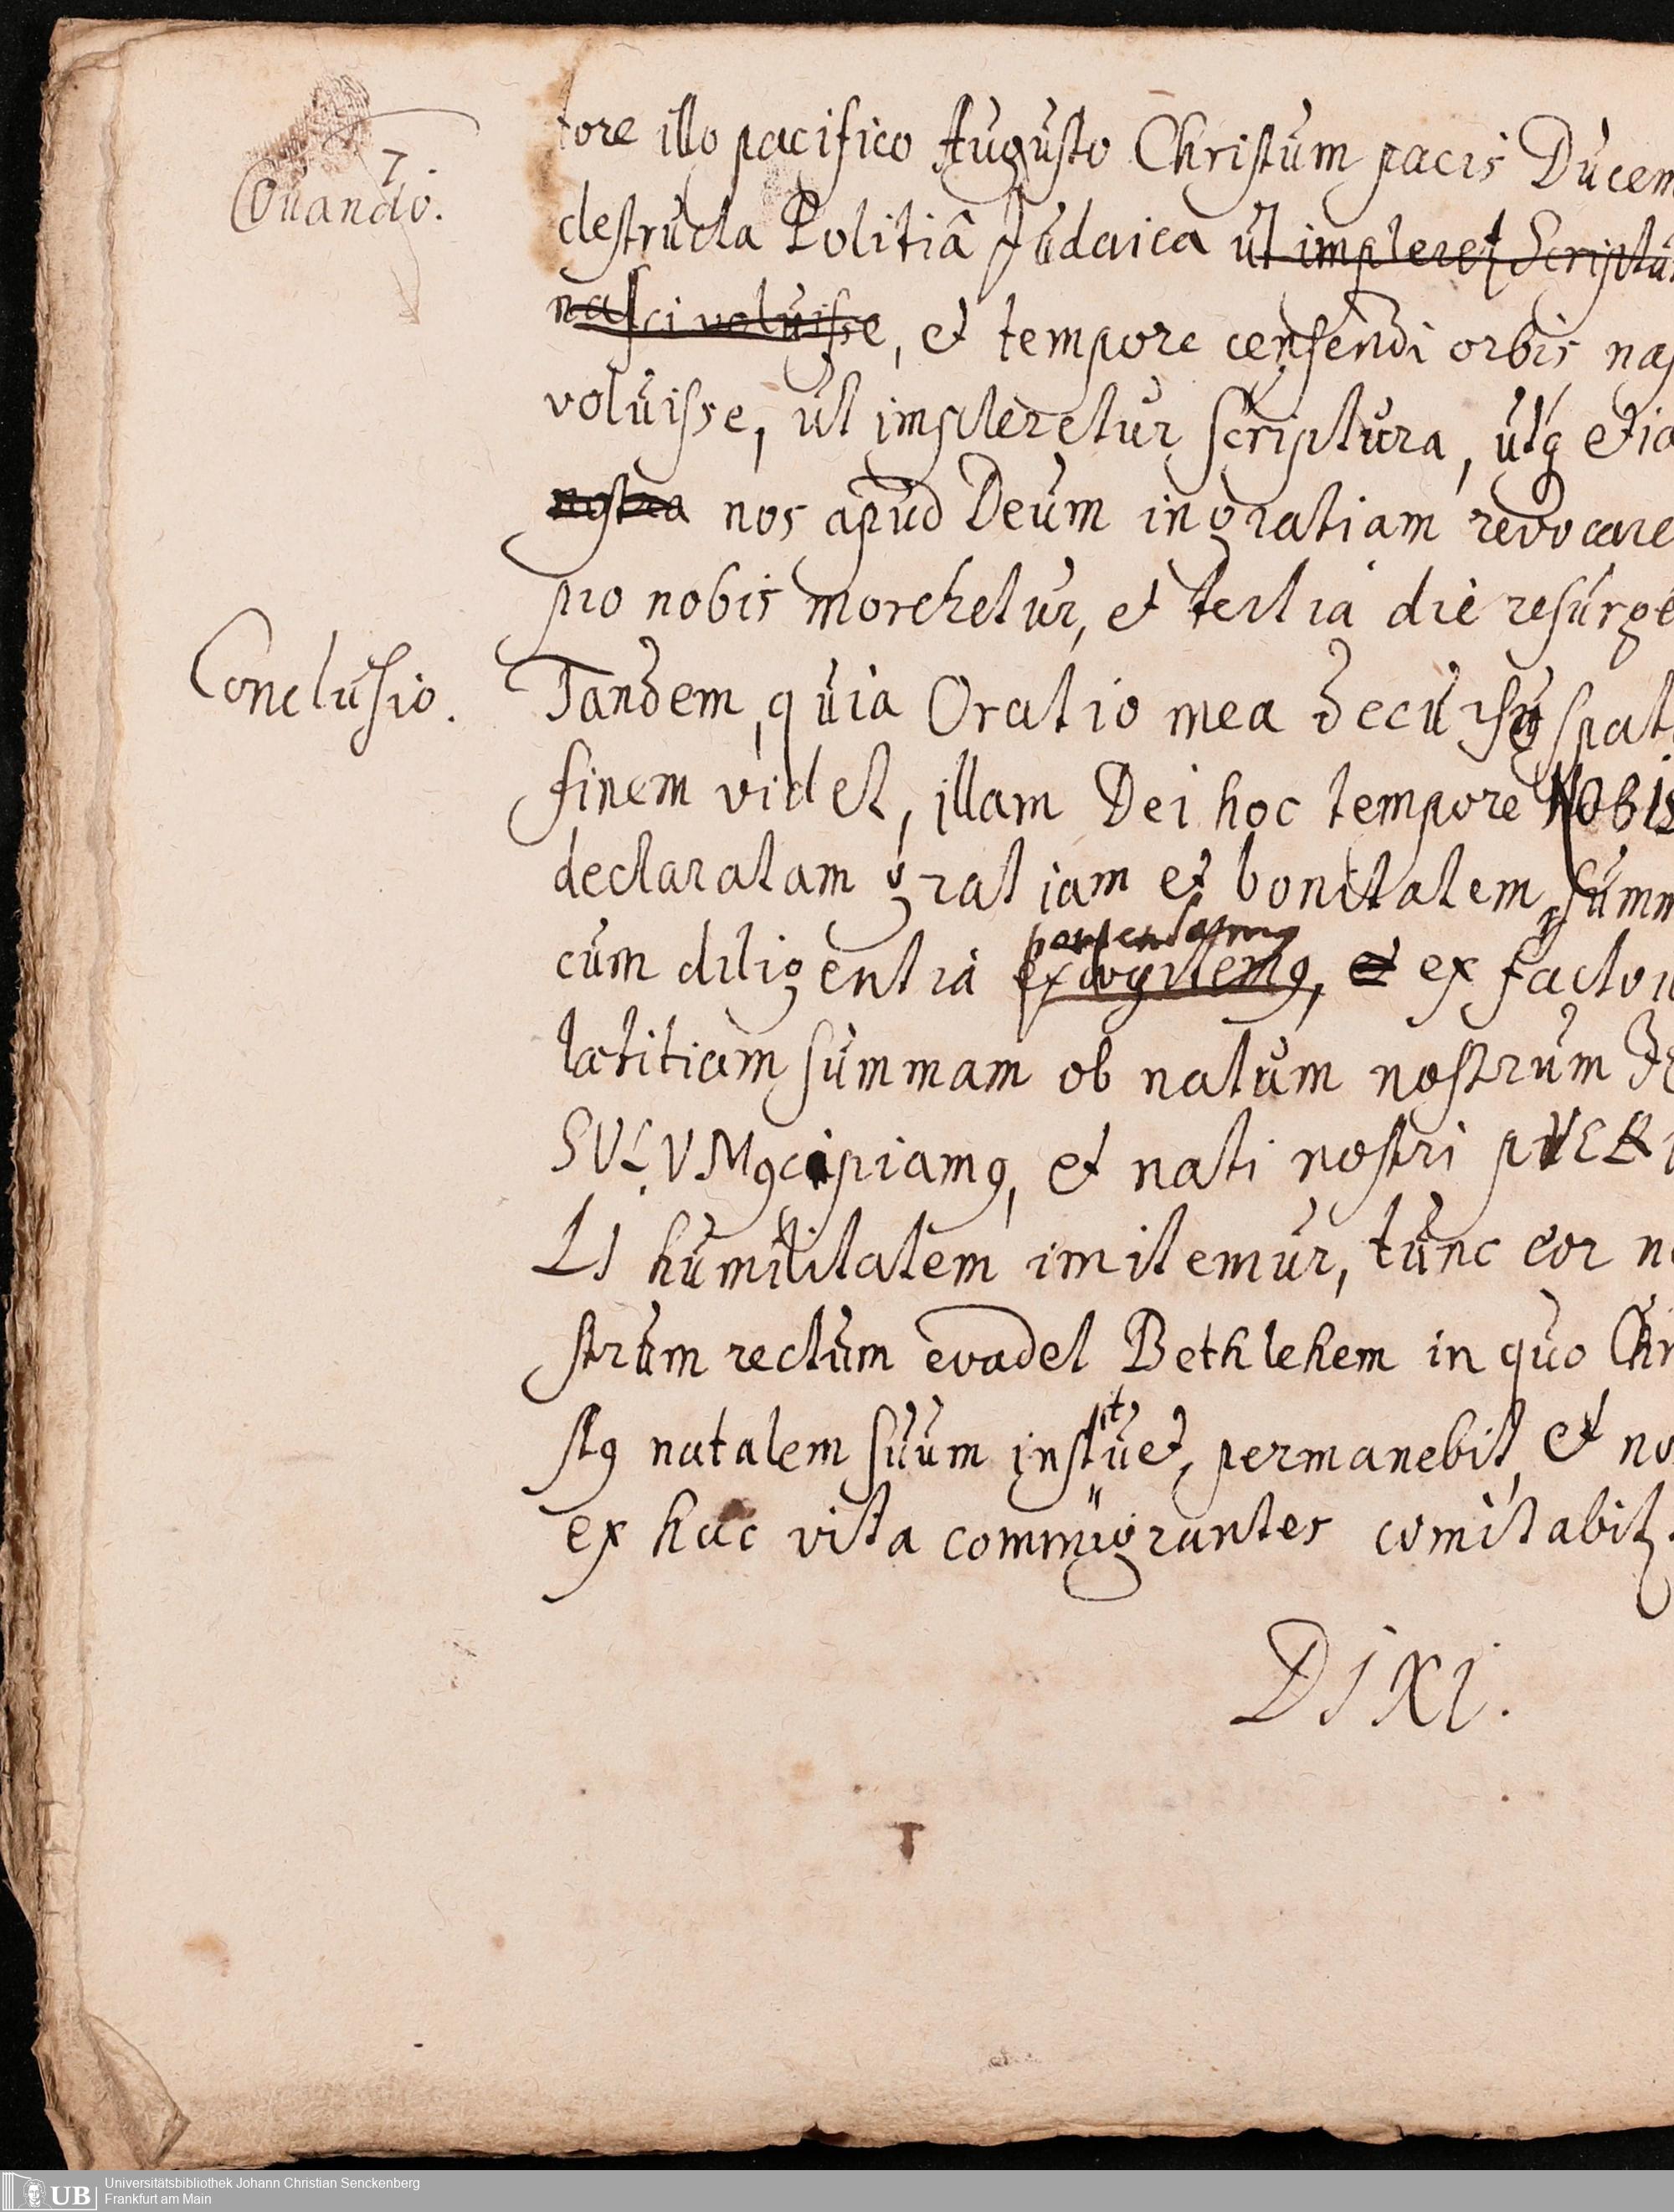 7.
Quando.
tore illo pacifico Augusto Christum pacis Ducem
destructa Politiâ Judaica ut impleret Scriptu
nasci voluisse, et tempore censendi orbis nas
voluisse, ut impleretur Scriptura, utq etia
nostra nos apud Deum in gratiam revocare
pro nobis morehetur, et tertia die resurge
Conclusio.
Tandem, quia Oratio mea decurso spat
finem videt, illam Dei hoc tempore NOBIS
declaratam gratiam et bonitatem, summ
perpendamq
cum diligentia excogitemq, et ex facto
lætitiam summam ob natum nostrum JE
SULUMq cipiamq, et nati nostri PUER
LI humilitatem imitemur, tunc cor no
strum rectum evadet Bethlehem in quo Chri
stq natalem suum instituet, permanebit, et no
ex hac vita commigrantes comitabit.
DIXI.
Universitätsbibliothek Johann Christian Senckenberg
Frankfurt am Main
UB